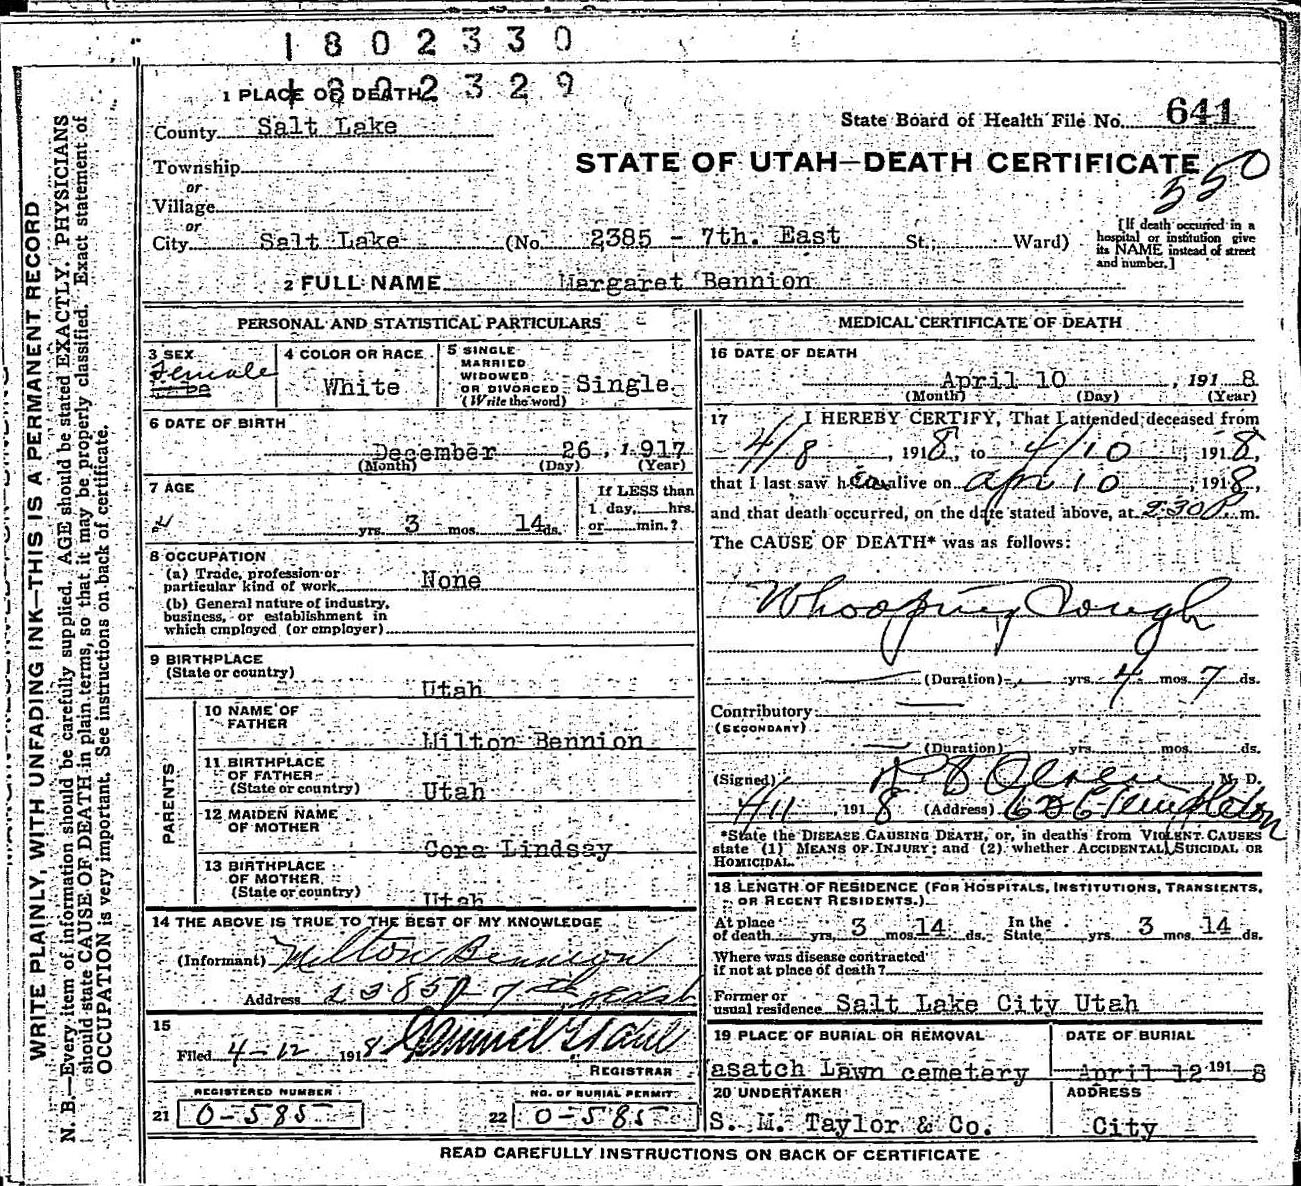 1802330
1802329
1 PLACE OF DEATH
County Salt Lake
State Board of Health File No. 641
Township
STATE OF UTAH—DEATH CERTIFICATE
350
or
Village
or
City Salt Lake (No. 2385 - 7th. East St.; Ward)
[If death occurred in a
hospital or institution give
its NAME instead of street
and number.]
2 FULL NAME Margaret Bennion
PERSONAL AND STATISTICAL PARTICULARS
3 SEX
Female
4 COLOR OR RACE
White
5 SINGLE
MARRIED
WIDOWED
OR DIVORCED
(Write the word)
Single
6 DATE OF BIRTH
December 26, 1917
(Month) (Day) (Year)
7 AGE
yrs. 3 mos. 14 ds.
If LESS than
1 day, hrs.
or min.?
8 OCCUPATION
(a) Trade, profession or
particular kind of work None
(b) General nature of industry,
business, or establishment in
which employed (or employer)
9 BIRTHPLACE
(State or country)
Utah
PARENTS
10 NAME OF
FATHER
Milton Bennion
11 BIRTHPLACE
OF FATHER
(State or country)
Utah
12 MAIDEN NAME
OF MOTHER
Cora Lindsay
13 BIRTHPLACE
OF MOTHER
(State or country)
Utah
14 THE ABOVE IS TRUE TO THE BEST OF MY KNOWLEDGE
(Informant) Milton Bennion
Address 2385 7th East
15
Filed 4-12 1918
REGISTRAR
REGISTERED NUMBER
21 0-585
NO. OF BURIAL PERMIT
22 0-585
MEDICAL CERTIFICATE OF DEATH
16 DATE OF DEATH
April 10, 1918
(Month) (Day) (Year)
17 I HEREBY CERTIFY, That I attended deceased from
4/8, 1918, to 4/10, 1918,
that I last saw her alive on Apr 10, 1918,
and that death occurred, on the date stated above, at 9:30 P m.
The CAUSE OF DEATH* was as follows:
Whooping Cough
(Duration) yrs. 4 mos. 7 ds.
Contributory
(SECONDARY)
(Duration) yrs. mos. ds.
(Signed) Olsen M. D.
4/11, 1918 (Address) 626 Templeton
*State the DISEASE CAUSING DEATH, or, in deaths from VIOLENT CAUSES
state (1) MEANS OF INJURY; and (2) whether ACCIDENTAL, SUICIDAL OR
HOMICIDAL.
18 LENGTH OF RESIDENCE (FOR HOSPITALS, INSTITUTIONS, TRANSIENTS,
OR RECENT RESIDENTS.)
At place
of death yrs. 3 mos. 14 ds.
In the
State yrs. 3 mos. 14 ds.
Where was disease contracted
if not at place of death?
Former or
usual residence Salt Lake City Utah
19 PLACE OF BURIAL OR REMOVAL
asatch Lawn cemetery
DATE OF BURIAL
April 12 1918
20 UNDERTAKER
S. M. Taylor & Co.
ADDRESS
City
READ CAREFULLY INSTRUCTIONS ON BACK OF CERTIFICATE
WRITE PLAINLY, WITH UNFADING INK—THIS IS A PERMANENT RECORD
N. B.—Every item of information should be carefully supplied. AGE should be stated EXACTLY. PHYSICIANS
should state CAUSE OF DEATH in plain terms, so that it may be properly classified. Exact statement of
OCCUPATION is very important. See instructions on back of certificate.